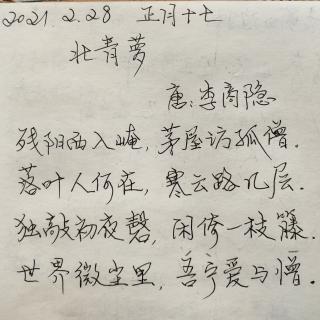 2021.2.28 正月十七
北青萝
唐:李商隐
残阳西入崦,茅屋访孤僧.
落叶人何在,寒云路几层.
独敲初夜磬,闲倚一枝籐.
世界微尘里,吾宁爱与憎.